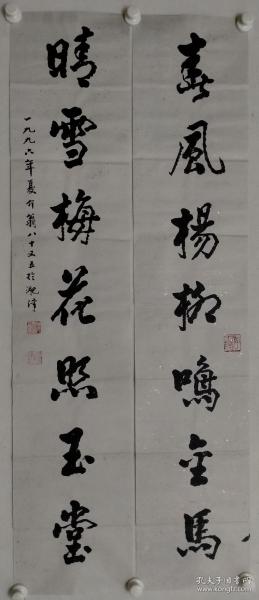 春風楊柳鳴金馬
晴雪梅花照玉堂
一九九六年夏有翁八十又五於湘潭
孔夫子旧书网